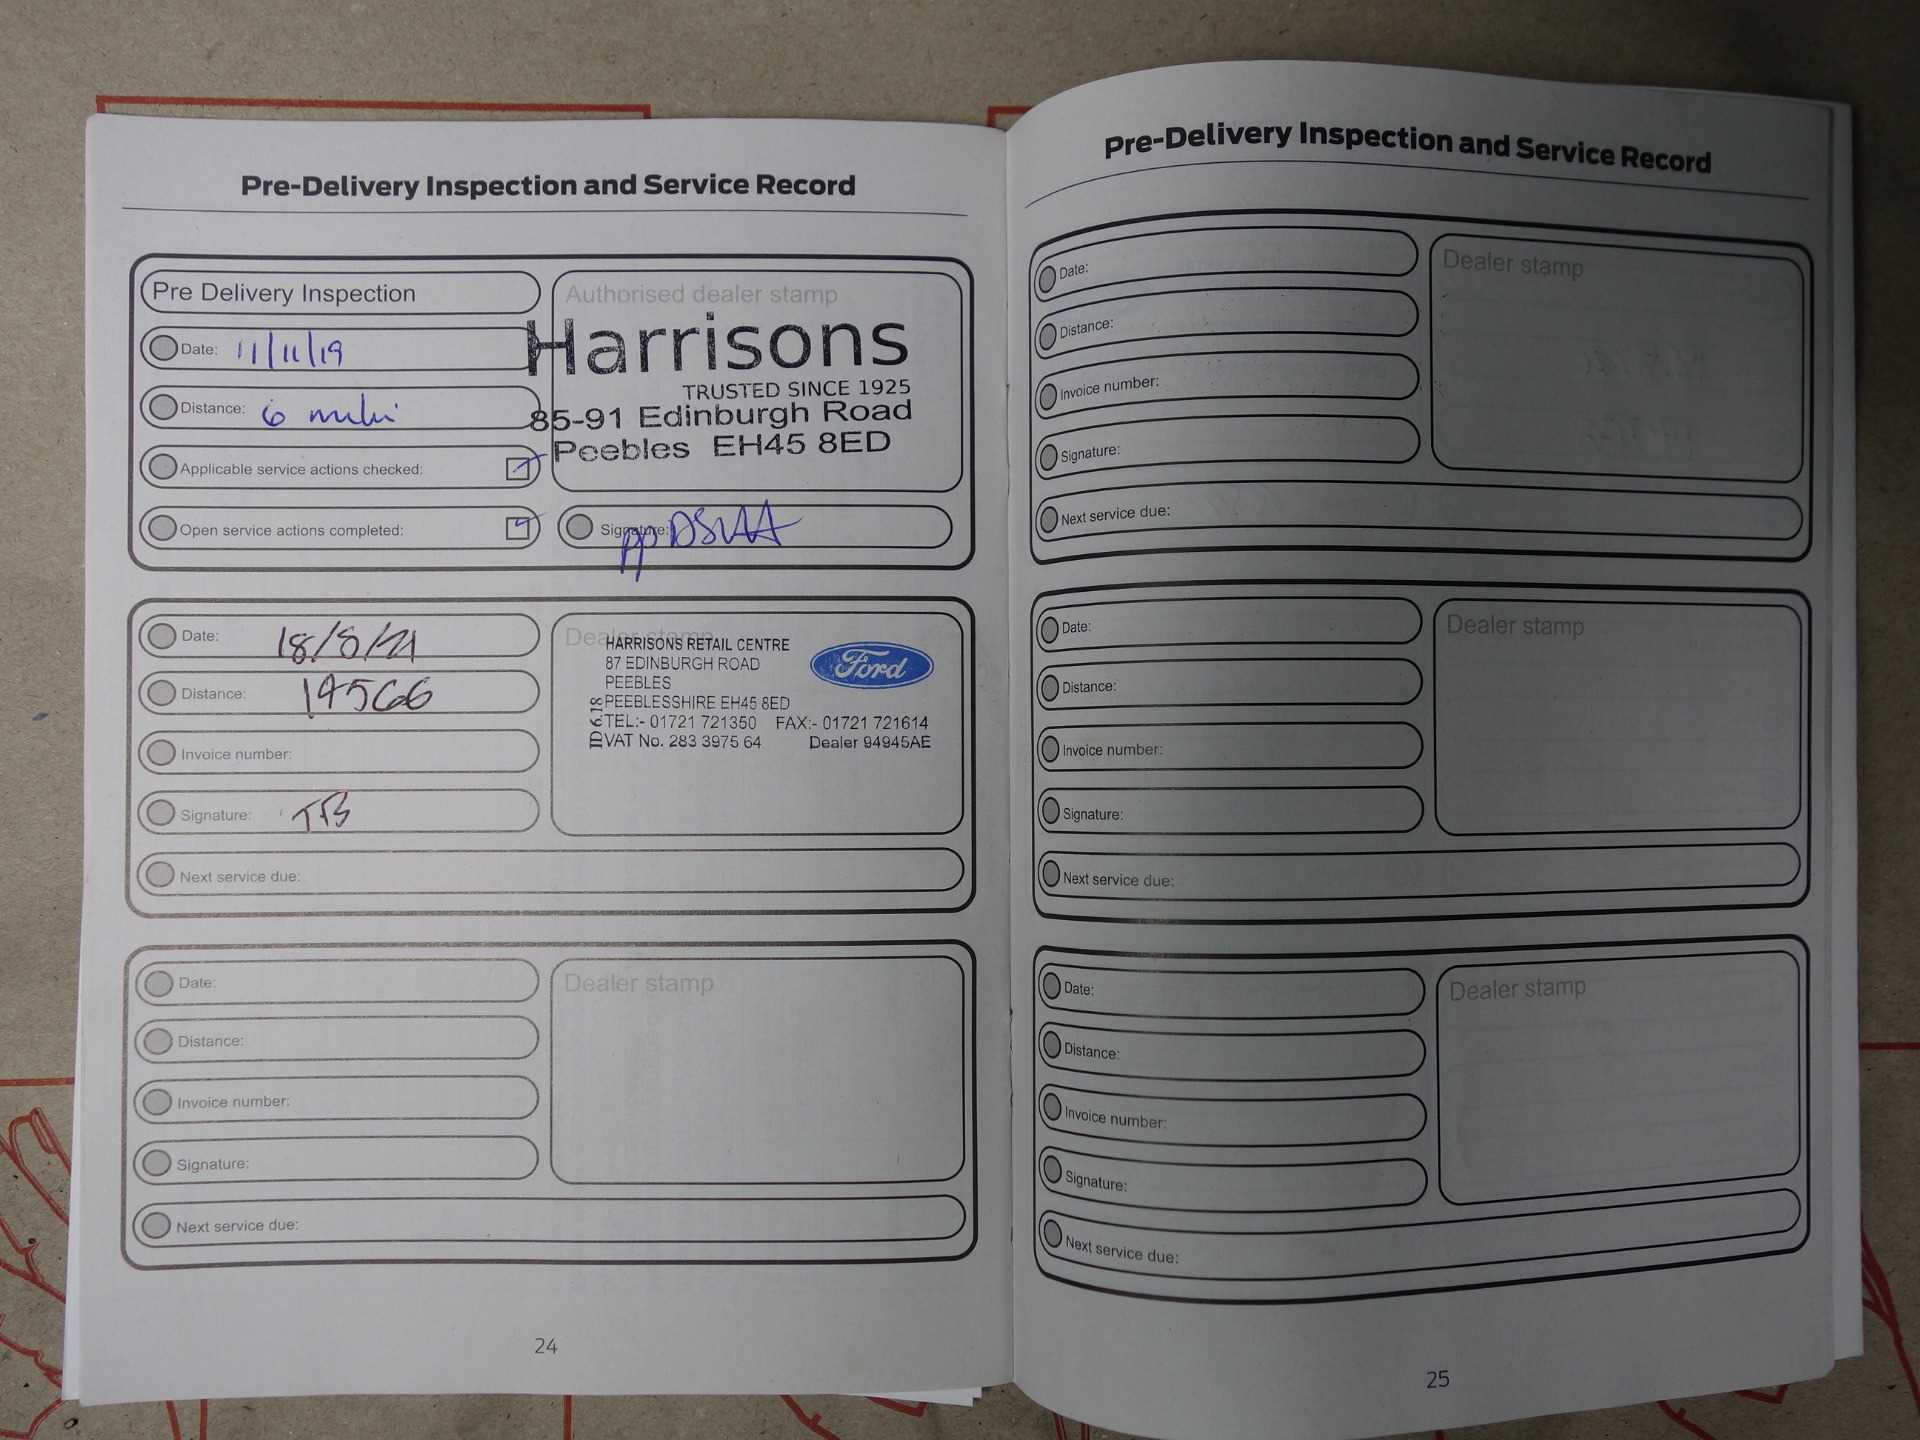 Pre-Delivery Inspection and Service Record
Pre Delivery Inspection
Date: 11/11/19
Distance: 6 miles
Applicable service actions checked:
Open service actions completed:
Authorised dealer stamp
Harrisons
TRUSTED SINCE 1925
85-91 Edinburgh Road
Peebles EH45 8ED
Signature: pp
Date: 18/8/21
Distance: 19566
Invoice number:
Signature: TB
Next service due:
Dealer stamp
HARRISONS RETAIL CENTRE
87 EDINBURGH ROAD
PEEBLES
PEEBLESSHIRE EH45 8ED
TEL:- 01721 721350 FAX:- 01721 721614
VAT No. 283 3975 64 Dealer 94945AE
ID 6.18
Ford
Date:
Distance:
Invoice number:
Signature:
Next service due:
Dealer stamp
24
Pre-Delivery Inspection and Service Record
Date:
Distance:
Invoice number:
Signature:
Next service due:
Dealer stamp
Date:
Distance:
Invoice number:
Signature:
Next service due:
Dealer stamp
Date:
Distance:
Invoice number:
Signature:
Next service due:
Dealer stamp
25